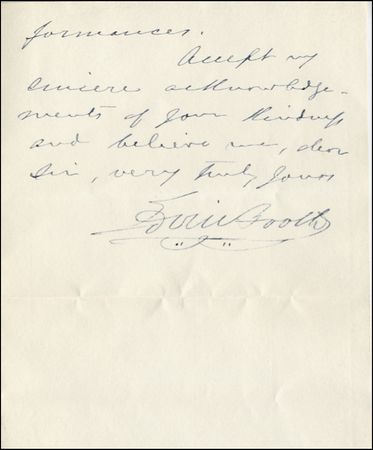 formances.
Accept my
sincere acknowledge-
ments of your kindness
and believe me, dear
Sir, very truly yours
Edwin Booth